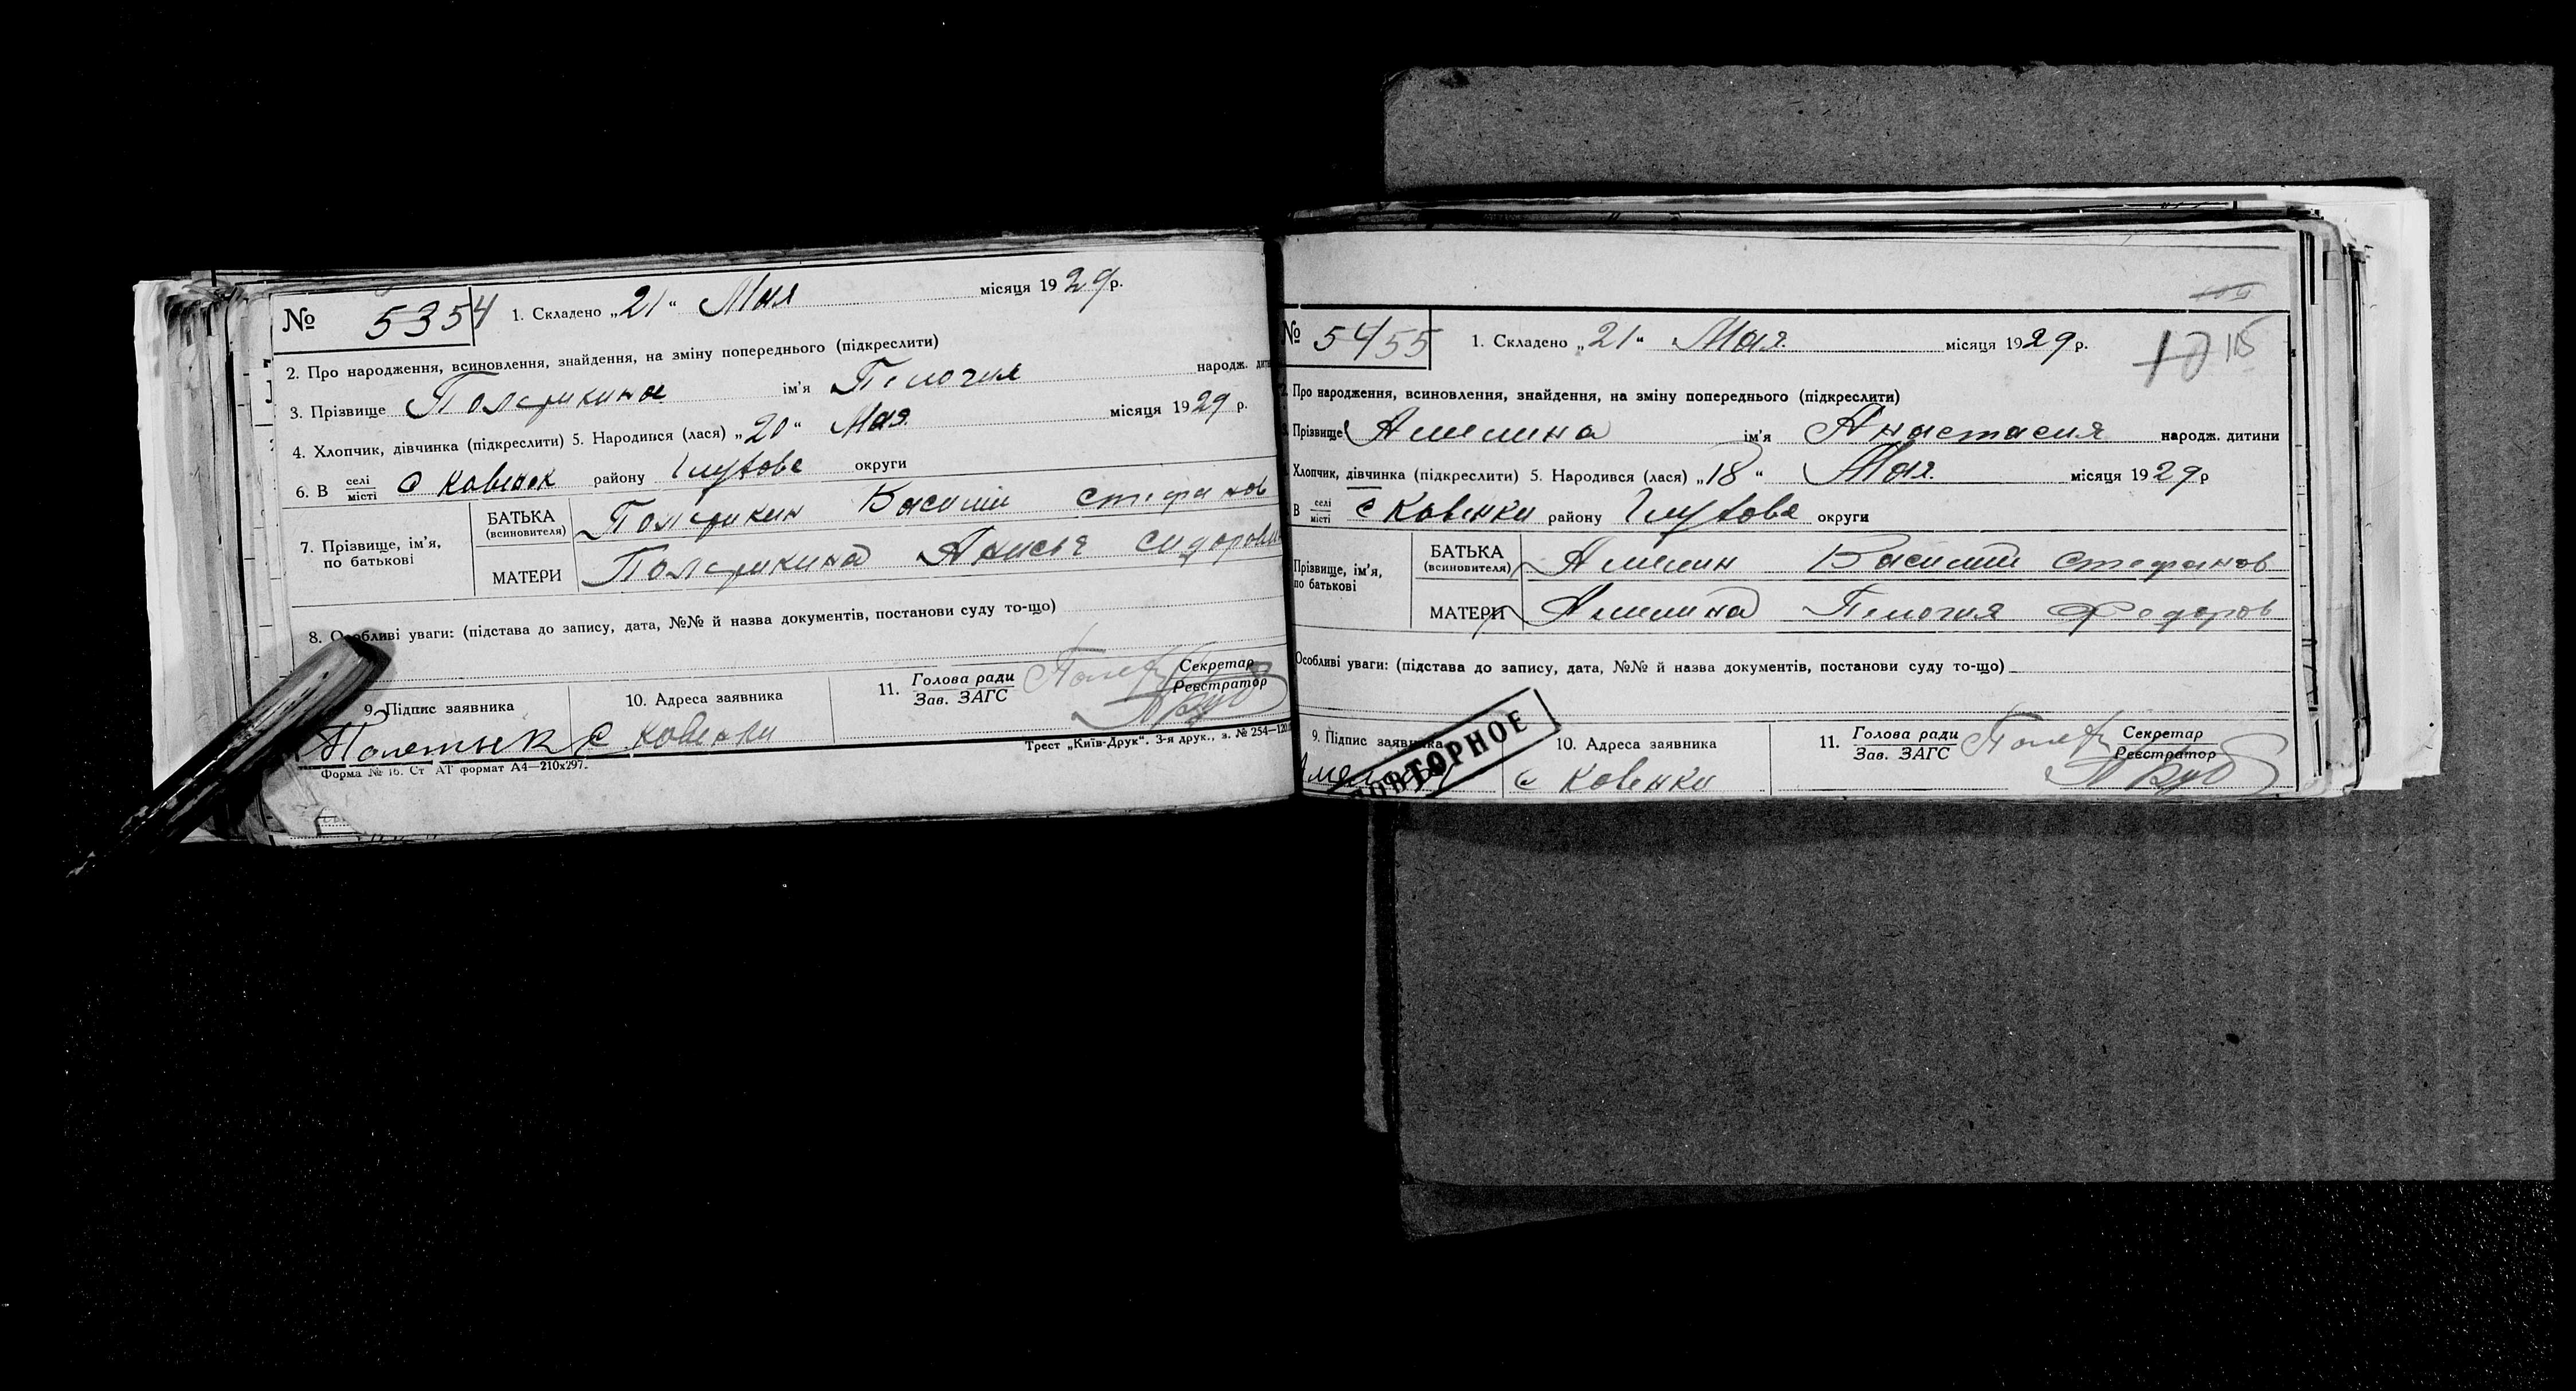 № 5354 1. Складено „21“ Мая місяця 1929р.
2. Про народження, всиновлення, знайдення, на зміну попереднього (підкреслити)
3. Прізвище ім'я Пелогия народж.
4. Хлопчик, дівчинка (підкреслити) 5. Народився (лася) „20“ Мая місяця 1929 р.
6. В селі місті с Ковенок району Глухове округи
7. Прізвище, ім'я, по батькові
БАТЬКА (всиновителя) Василий Стефанов
МАТЕРИ Анисья
8. Особливі уваги: (підстава до запису, дата, №№ й назва документів, постанови суду то-що)
9. Підпис заявника
10. Адреса заявника
с Ковенки
11. Голова ради Зав. ЗАГС
Секретар Реєстратор
Форма № 16. Ст АТ формат А4—210х297.
Трест „Київ-Друк“. 3-я друк., з. № 254—120
№ 5455 1. Складено „21“ Мая місяця 1929р.
115
Про народження, всиновлення, знайдення, на зміну попереднього (підкреслити)
Прізвище Амелина ім'я Анастасия народж. дитини
Хлопчик, дівчинка (підкреслити) 5. Народився (лася) „18“ Мая місяця 1929р
В селі місті с Ковенки району Глухове округи
Прізвище, ім'я, по батькові
БАТЬКА (всиновителя) Амелин Василий Стефанов
МАТЕРИ Амелина Пелогия Федоров
Особливі уваги: (підстава до запису, дата, №№ й назва документів, постанови суду то-що)
9. Підпис заявника
ПОВТОРНОЕ
10. Адреса заявника
с Ковенки
11. Голова ради Зав. ЗАГС
Секретар Реєстратор